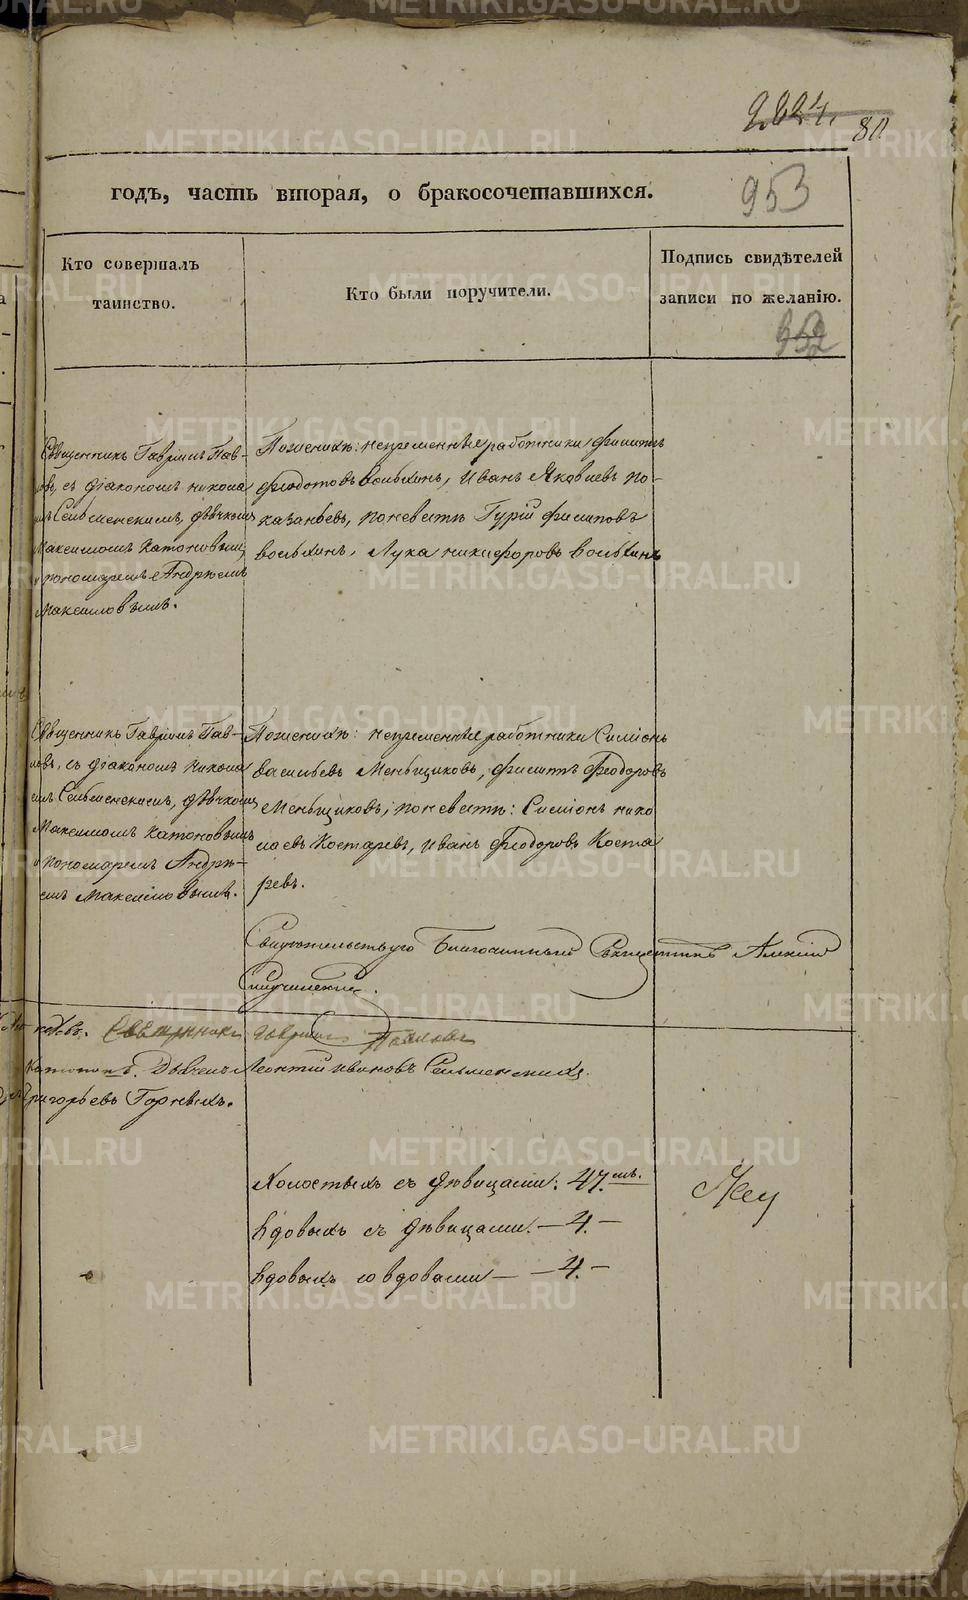 2224.
80
годъ, часть вторая, о бракосочетавшихся.
953
Кто совершалъ
таинство.
Кто были поручители.
Подпись свидѣтелей
записи по желанію.
952
Священникъ Гавріилъ Пав-
ловъ, съ діакономъ Никола
емъ Сельменскимъ, дьячкомъ
Максимомъ Катоновымъ,
и пономаремъ Андреемъ
Максимовымъ.
По женихѣ: непременные работники Филиппъ
Федотовъ Вольхинъ, Иванъ Яковлевъ По-
казаньевъ, по невестѣ Гурій Филиповъ
Вольхинъ, Лука Никифоровъ Вольхинъ
Священникъ Гавріилъ Пав-
ловъ, съ діакономъ Никола
емъ Сельменскимъ, дьячкомъ
Максимомъ Катоновымъ
и пономаремъ Андре-
емъ Максимовымъ.
По женихѣ: непременные работники Симіонъ
Васильевъ Меньщиковъ, Филиппъ Феодоровъ
Меньщиковъ; по невестѣ: Симіонъ Нико
лаевъ Костаревъ, Иванъ Феодоровъ Коста
ревъ.
Свидѣтельствую Благочинный Священникъ Алексій
Священникъ Гавріилъ Павловъ
Катоновъ. Дьячекъ Леонтій Ивановъ Сельменскихъ.
Григорьевъ Горныхъ.
Холостыхъ съ дѣвицами: 47. бр.
Вдовыхъ съ дѣвицами. — 4. —
Вдовыхъ со вдовами — — 4. —
METRIKI.GASO-URAL.RU